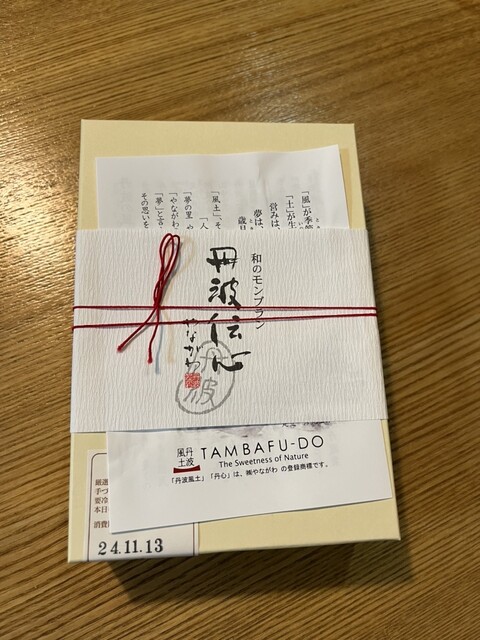 「風」が季節
「土」が生
営みは、
夢は、
歳月
「風土」、そ
「人
「夢の里 や
「やながわ
「夢」と言
その思いを
和のモンブラン
丹波伝心
やながわ
丹波
丹波
風土
TAMBAFU-DO
The Sweetness of Nature
「丹波風土」「丹心」は、㈱やながわ の登録商標です。
厳選
手づ
要冷
本日
消費
24.11.13